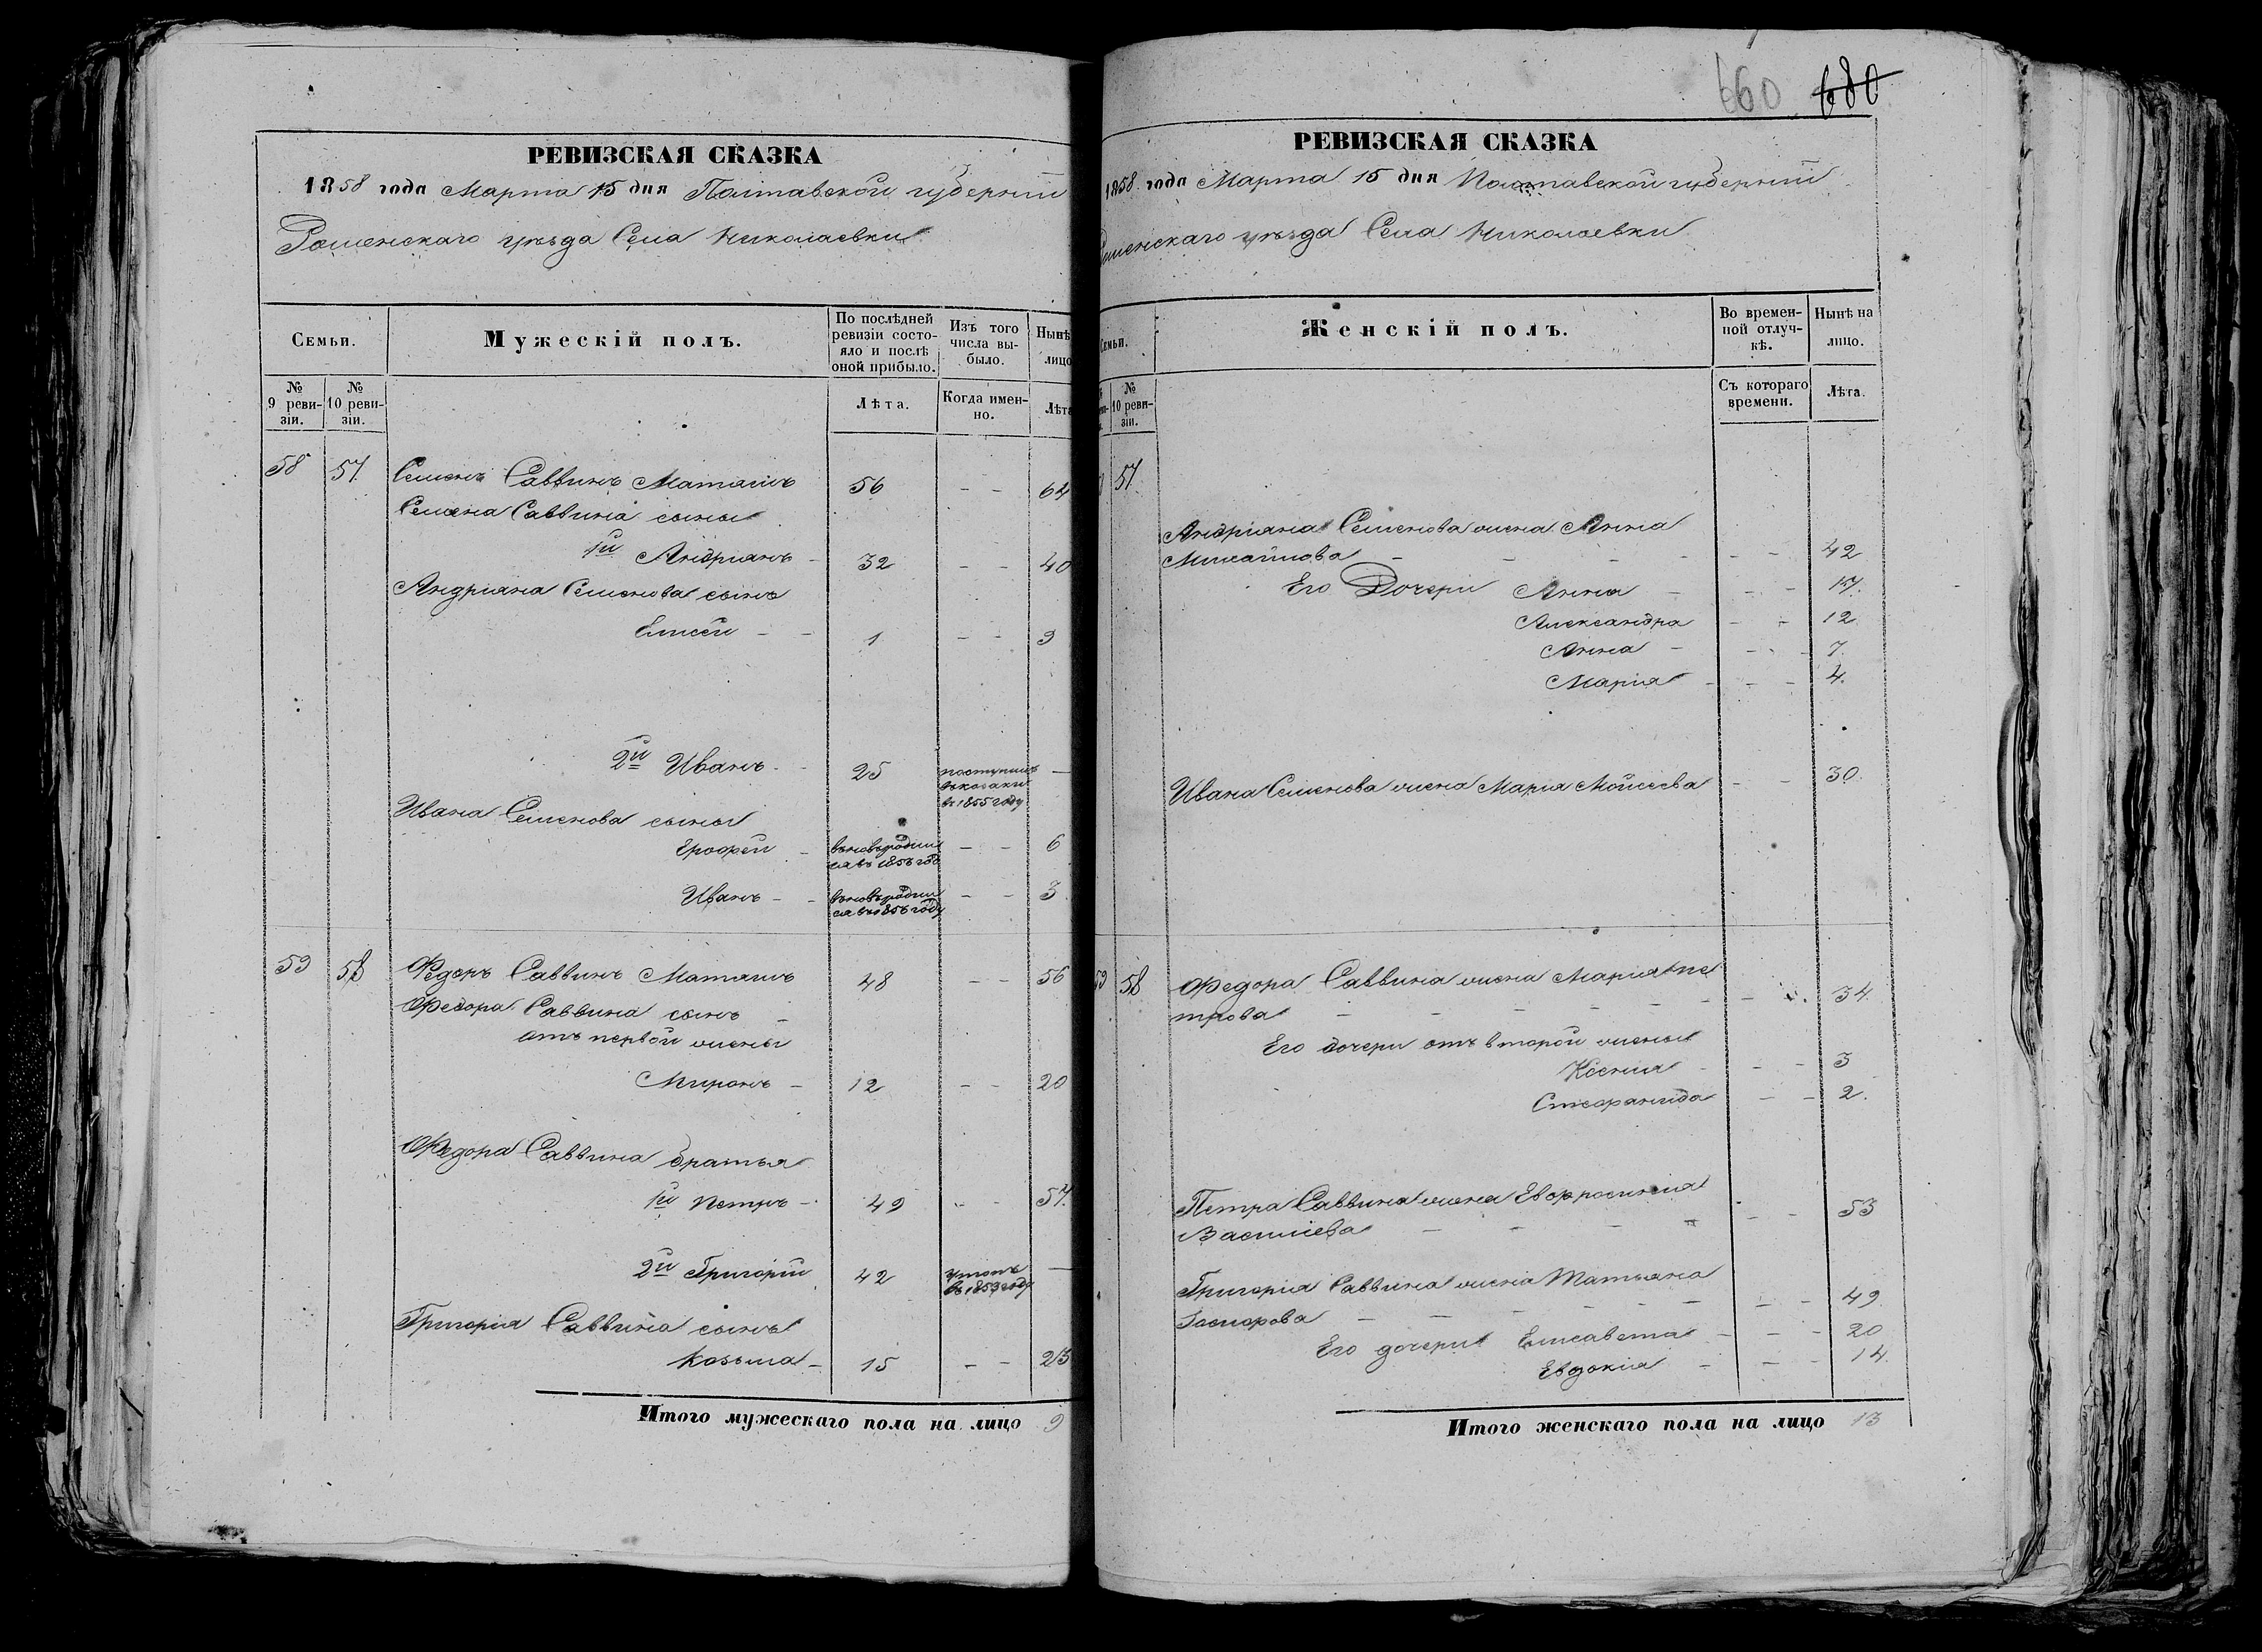 660 680
РЕВИЗСКАЯ СКАЗКА
1858 года Марта 15 дня Полтавской губерніи
Роменскаго уѣзда Села Николаевки
Семьи.
Мужескій полъ.
По послѣдней ревизіи состояло и послѣ оной прибыло.
Изъ того числа выбыло.
Нынѣ лицо
№ 9 ревизіи.
№ 10 ревизіи.
Лѣта.
Когда именно.
Лѣта
58 57. Семенъ Саввинъ 56 - - 64
Семена Саввина сыны
1й Андріанъ - 32 - - 40
Андріана Семенова сынъ
Елисей - - 1 - - 9
2й Иванъ - 25 поступилъ въ козаки въ 1855 году -
Ивана Семенова сыны
Ерофей - - - 6
Иванъ - - - - 3
59 58 Федоръ Саввинъ 48 - - 56
Федора Саввина сынъ -
отъ первой жены
Миронъ - 12 - - 20
Федора Саввина братья
1й Петръ - 49 - - 57.
2й Григорій 42 въ 1853 году -
Григорія Саввина сынъ
Козьма - 15 - - 23
Итого мужескаго пола на лицо 9
РЕВИЗСКАЯ СКАЗКА
1858 года Марта 15 дня Полтавской губерніи
Роменскаго уѣзда Села Николаевки
Семьи.
Женскій полъ.
Во временной отлучкѣ.
Нынѣ на лицо.
№ 10 ревизіи.
Съ котораго времени.
Лѣта.
57.
Андріана Семенова жена Анна
Михайлова - - - - - - 42
Его Дочери Анна - - - 17.
Александра - - 12
Анна - - - 7.
Марія - - - 4.
Ивана Семенова жена Марія Мойсеева - - 30.
59 58 Федора Саввина жена Марія Пе
трова - - - - - - 34.
Его дочери отъ второй жены
Ксенія - - - 3
Стефанида - - 2.
Петра Саввина жена Евфросинія
Васильева - - - - - - 53
Григорія Саввина жена Татьяна
- - - - - - - 49.
Его дочери Елисавета - - - 20
Евдокія - - - 14.
Итого женскаго пола на лицо 13